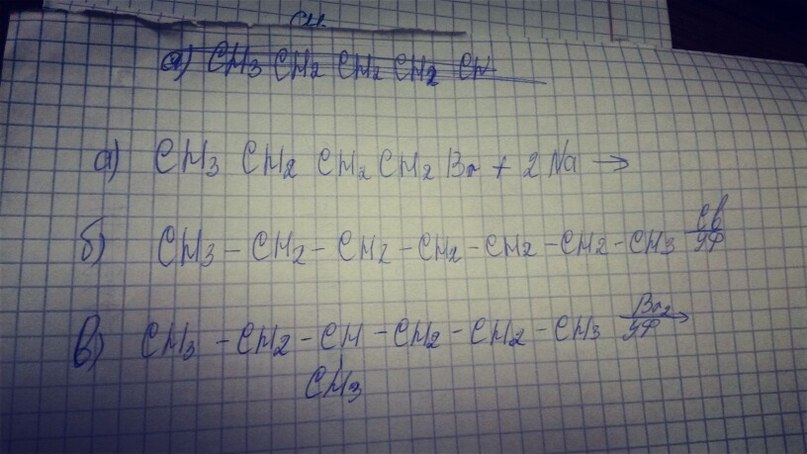 CH
а) CH3 CH2 CH2 CH2 CH
а) CH3 CH2 CH2 CH2 Br + 2 Na →
б) CH3 – CH2 – CH2 – CH2 – CH2 – CH2 – CH3 УФ
в) CH3 – CH2 – CH – CH2 – CH2 – CH3 Br2 УФ →
CH3